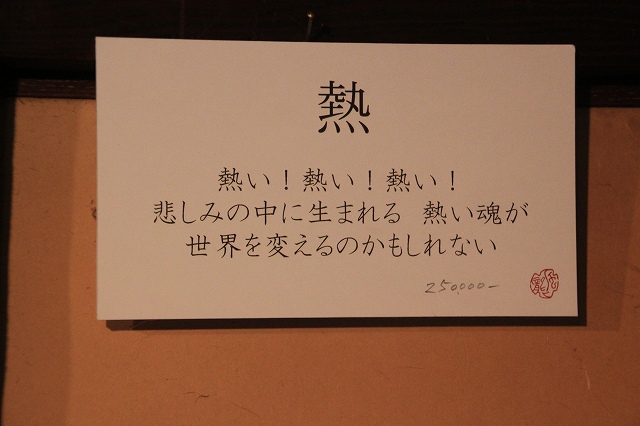 熱
熱い！熱い！熱い！
悲しみの中に生まれる 熱い魂が
世界を変えるのかもしれない
250,000-